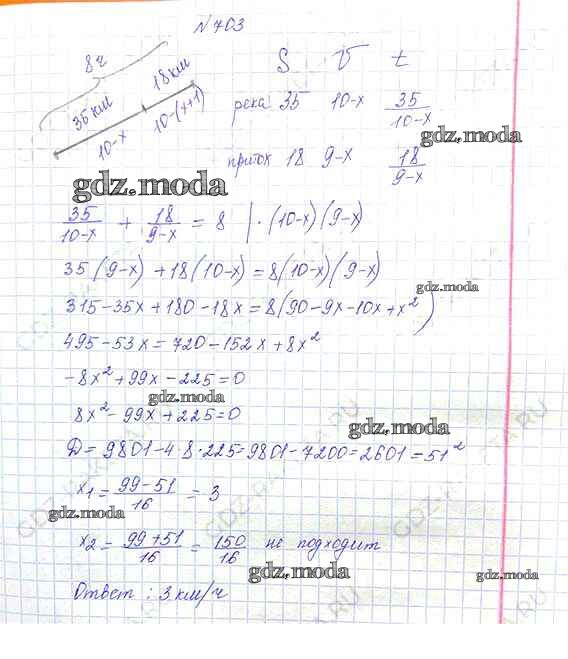 №703
8ч
35км 18км
10-x 10-(x+1)
S V t
река 35 10-x 35/(10-x)
gdz.moda
приток 18 9-x 18/(9-x)
gdz.moda
35/(10-x) + 18/(9-x) = 8 |·(10-x)(9-x)
35(9-x)+18(10-x)=8(10-x)(9-x)
gdz.moda
315-35x+180-18x=8(90-9x-10x+x²)
495-53x=720-152x+8x²
-8x²+99x-225=0
gdz.moda
8x²-99x+225=0
gdz.moda
D=9801-4·8·225=9801-7200=2601=51²
x₁=(99-51)/16=3
gdz.moda
x₂=(99+51)/16=150/16 не подходит
gdz.moda
gdz.moda
Ответ: 3км/ч